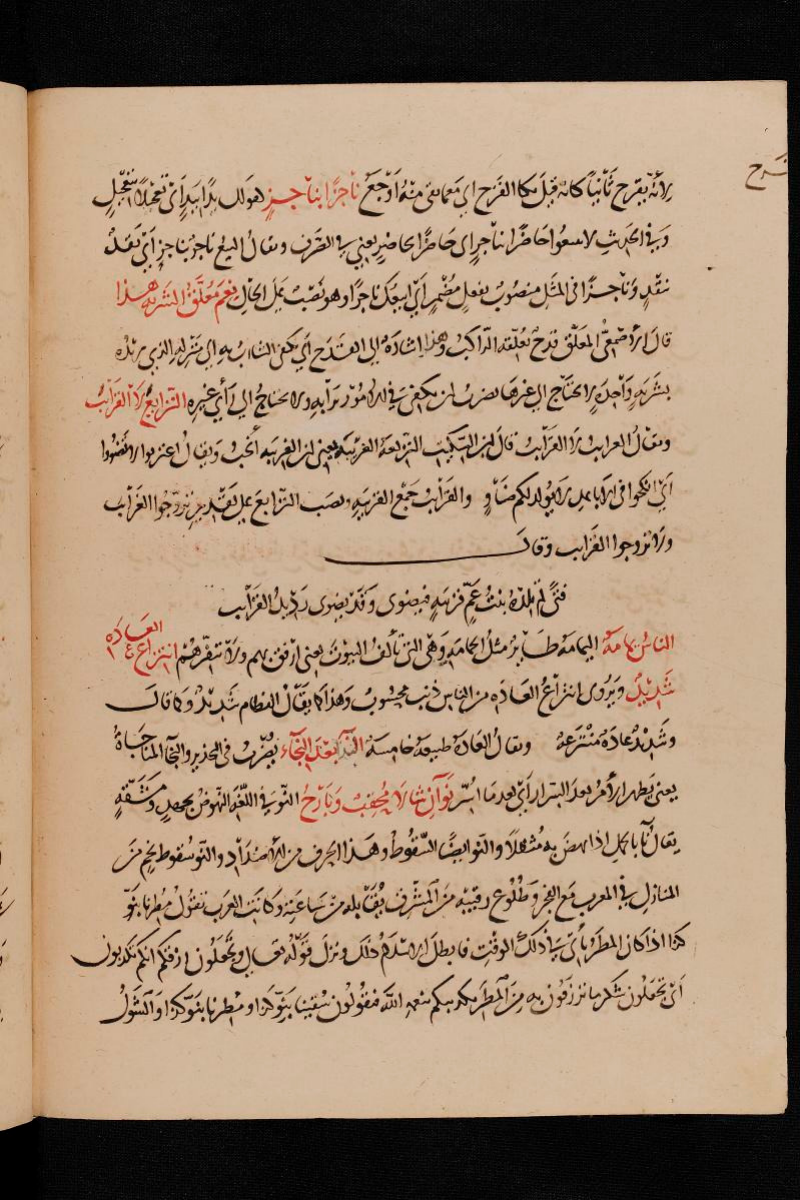 لأنه يقرح ثانيا كانه قبل نكا القرح اي مما بقى منه اوجع ناجزا بناجز هو كقولك يدا بيد اي تعجيلا بتعجيل
وفي الحديث لا تبيعوا حاضرا بناجز اي حاضرا بحاضر يعني في الصرف ويقال البيع ناجز بناجز اي نقد
بنقد وناجزا في المثل منصوب بفعل مضمر اي ابيعك ناجزا وهو نصب على الحال نعم معلق الشربة هذا
قال الأصمعي المعلق قدح يعلقه الراكب وهذا اشارة الى القدح اي يكفي الشارب به الى منزله الذي يريده
بشربة واحدة لا يحتاج الى غيرها يضرب لمن يكتفي في الامور برأيه ولا يحتاج الى رأي غيره النزائع لا القرائب
ويقال الغرائب لا القرائب قال ابن السكيت النزيعة الغريبة يعني ان الغريبة انجب ويقال اغتربوا لا تضووا
اي انكحوا في الاباعد لا يولد لكم ضاو والقرائب جمع القريبة ونصب النزائع على تقدير تزوجوا الغرائب
ولا تزوجوا القرائب وقال
فتى لم تلده بنت عم قريبة فيضوى وقد يضوى رديد القرائب
الناس يمامة اليمامة طاير مثل الحمامة وهي التي تألف البيوت يعني ارفق بهم ولا تنفرهم انتزاع العادة
شديد ويروى انتزاع العادة من الناس ذنب محسوب وهذا كما يقال الفطام شديد وكما قال
وشديد عادة منتزعة ويقال العادة طبيعة خامسة النبأ بعد النجاء يضرب في التحذير والنجا المناجاة
يعني يظهر الأمر بعد الاسرار اي بعد ما اسر نوآن شالا محقب وبارح النوء في اللغة النهوض بجهد ومشقة
يقال ناء بالحمل اذا نهض به مثقلا والنوء ايضا السقوط وهذا الحرف من الأضداد والنوء سقوط نجم من
المنازل في المغرب مع الفجر وطلوع رقيبه من المشرق يقابله من ساعته وكانت العرب تقول مطرنا بنوء
كذا اذا كان المطر يأتي في ذلك الوقت فابطل الاسلام ذلك ونزل قوله تعالى وتجعلون رزقكم انكم تكذبون
اي تجعلون شكر ما ترزقون به من المطر تكذيبكم بنعمة الله فتقولون سقينا بنوء كذا ومطرنا بنوء كذا والشول